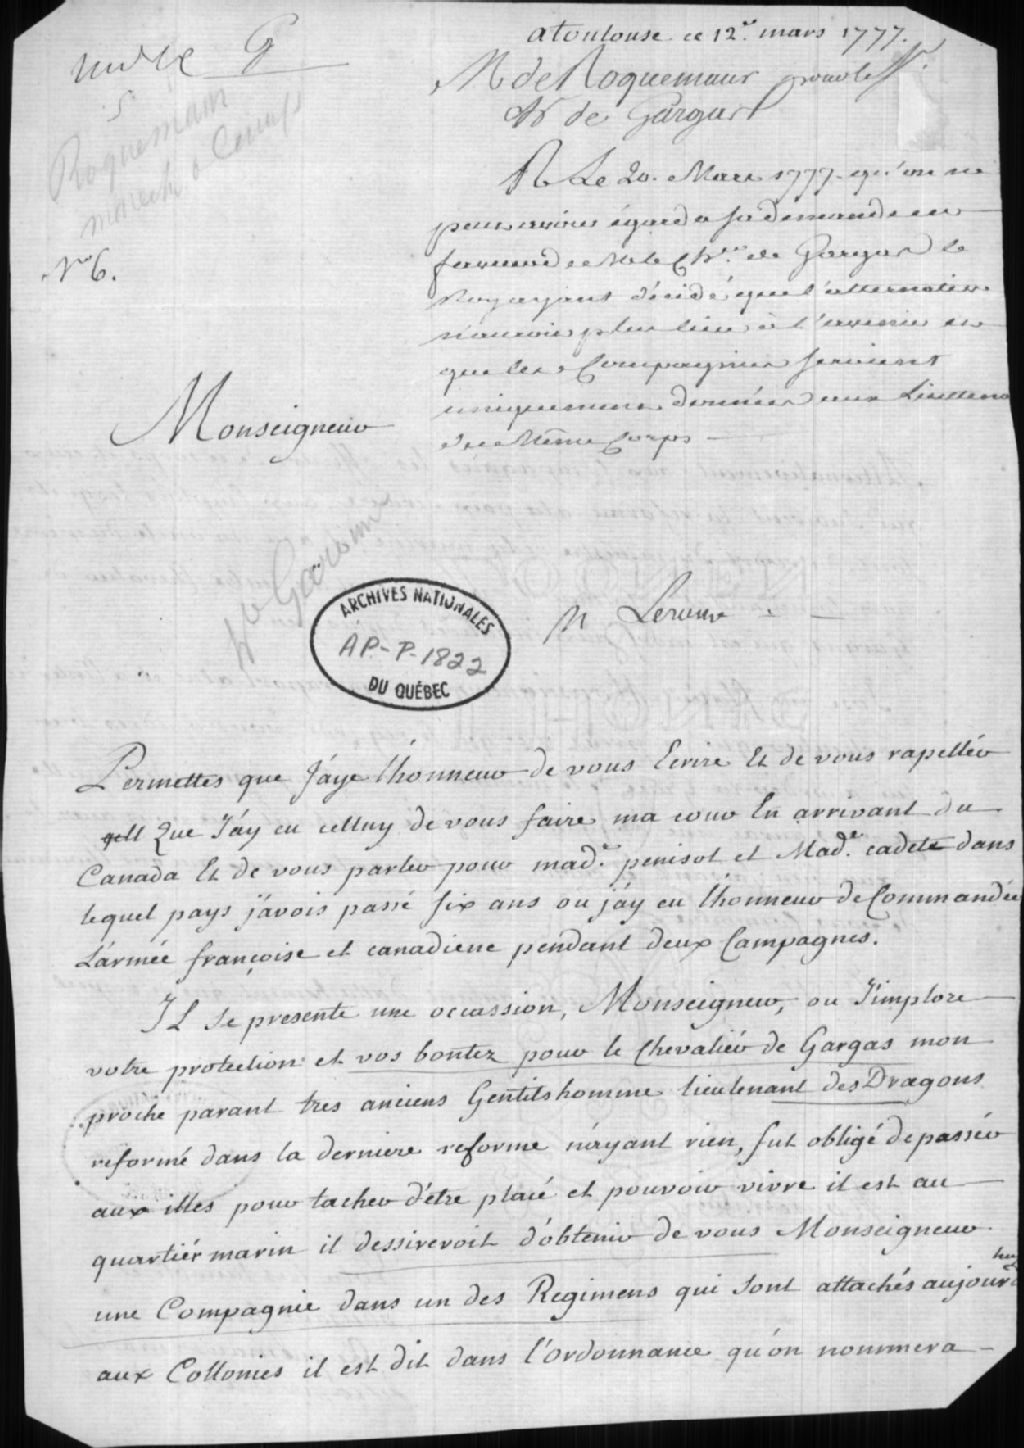 a Toulouse ce 12.e mars 1777.
M. de Roquemaur pour le Sr.
Ch de Gargas
R Le 20. Mars 1777. qu'on ne
peut avoir égard a sa demande en
faveur de M. le Ch.er de Gargas le
Roy ayant décidé que l'alternative
n'auroit plus lieu à l'avenir et
que les Compagnies seroient
uniquement données aux Lieutenans
du même Corps
G
5
Roquemaur
No 6.
Monseigneur
ARCHIVES NATIONALES
AP-P-1822
DU QUÉBEC
Permettes que J'aye l'honneur de vous Ecrire Et de vous rapeller
Que J'ay eu celluy de vous faire ma cour En arrivant du
Canada Et de vous parler pour mad.e penisot et Mad.e cadete dans
lequel pays j'avois passé six ans ou j'ay eu l'honneur de Commander
L'armée françoise et canadiene pendant deux Campagnes.
IL se presente une occassion, Monseigneur, ou J'implore
votre protection et vos bontez pour le Chevalier de Gargas mon
proche parant tres anciens Gentilshomme lieutenant des Dragons
reformé dans la derniere reforme n'ayant rien, fut obligé de passer
aux illes pour tacher d'etre placé et pouvoir vivre il est au
quartier marin il dessireroit d'obtenir de vous Monseigneur
une Compagnie dans un des Regimens qui sont attachés aujourd'huy
aux Collonies il est dit dans l'ordonnance qu'on nommera